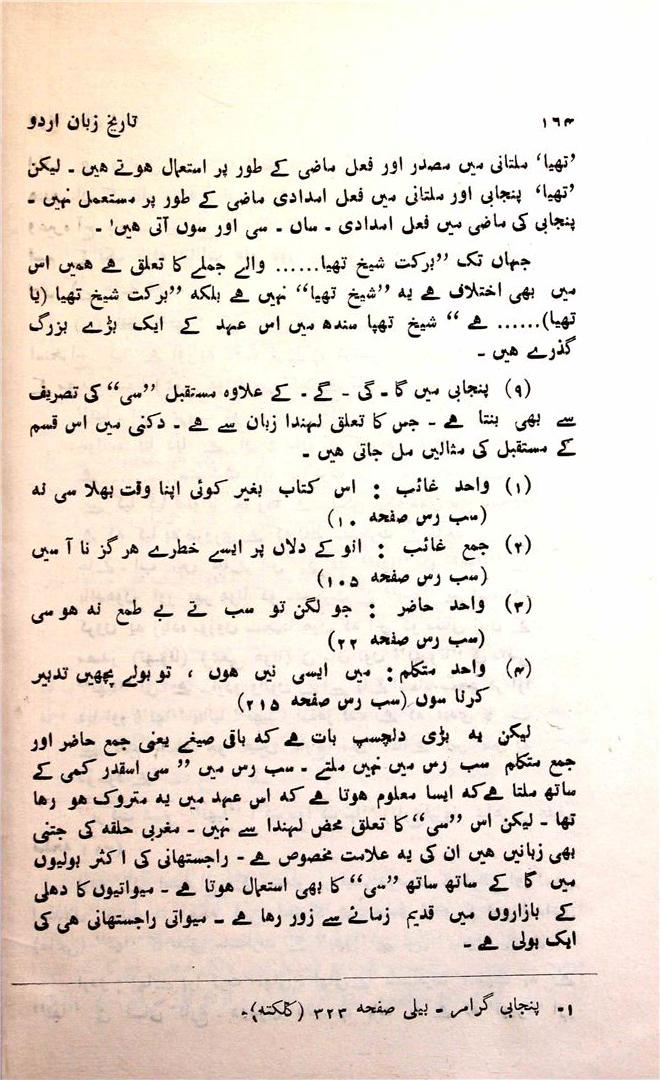 ۱۶۴
تاریخ زبان اردو
’تھیا‘ ملتانی میں مصدر اور فعل ماضی کے طور پر استعمال ہوتے ہیں ۔ لیکن
’تھیا‘ پنجابی اور ملتانی میں فعل امدادی ماضی کے طور پر مستعمل نہیں ۔
پنجابی کی ماضی میں فعل امدادی ۔ ساں ۔ سی اور سوں آتی ہیں۱ ۔
جہاں تک ”برکت شیخ تھیا...... والے جملے کا تعلق ہے ہمیں اس
میں بھی اختلاف ہے یہ ”شیخ تھیا“ نہیں ہے بلکہ ”برکت شیخ تھپا (یا
تھیا)...... ہے “ شیخ تھپا سندھ میں اس عہد کے ایک بڑے بزرگ
گذرے ہیں ۔
(۹) پنجابی میں گا ۔ گی ۔ گے ۔ کے علاوہ مستقبل ”سی“ کی تصریف
سے بھی بنتا ہے ۔ جس کا تعلق لہندا زبان سے ہے ۔ دکنی میں اس قسم
کے مستقبل کی مثالیں مل جاتی ہیں ۔
(۱) واحد غائب : اس کتاب بغیر کوئی اپنا وقت بھلا سی نہ
(سب رس صفحہ ۱۰)
(۲) جمع غائب : انو کے دلاں پر ایسے خطرے ہر گز نا آ سیں
(سب رس صفحہ ۱۰۵)
(۳) واحد حاضر : جو لگن تو سب تے بے طمع نہ ہو سی
(سب رس صفحہ ۲۲)
(۴) واحد متکلم: میں ایسی نیں ہوں ، تو بولے پچھیں تدبیر
کرنا سوں (سب رس صفحہ ۲۱۵)
لیکن یہ بڑی دلچسپ بات ہے کہ باقی صیغے یعنی جمع حاضر اور
جمع متکلم سب رس میں نہیں ملتے ۔ سب رس میں ” سی اسقدر کمی کے
ساتھ ملتا ہے کہ ایسا معلوم ہوتا ہے کہ اس عہد میں یہ متروک ہو رہا
تھا ۔ لیکن اس ”سی“ کا تعلق محض لہندا سے نہیں ۔ مغربی حلقہ کی جتنی
بھی زبانیں ہیں ان کی یہ علامت مخصوص ہے ۔ راجستھانی کی اکثر بولیوں
میں گا کے ساتھ ساتھ ”سی“ کا بھی استعمال ہوتا ہے ۔ میواتیوں کا دھلی
کے بازاروں میں قدیم زمانے سے زور رہا ہے ۔ میواتی راجستھانی ہی کی
ایک بولی ہے ۔
۱۔ پنجابی گرامر ۔ بیلی صفحہ ۳۲۳ (کلکتہ)۔